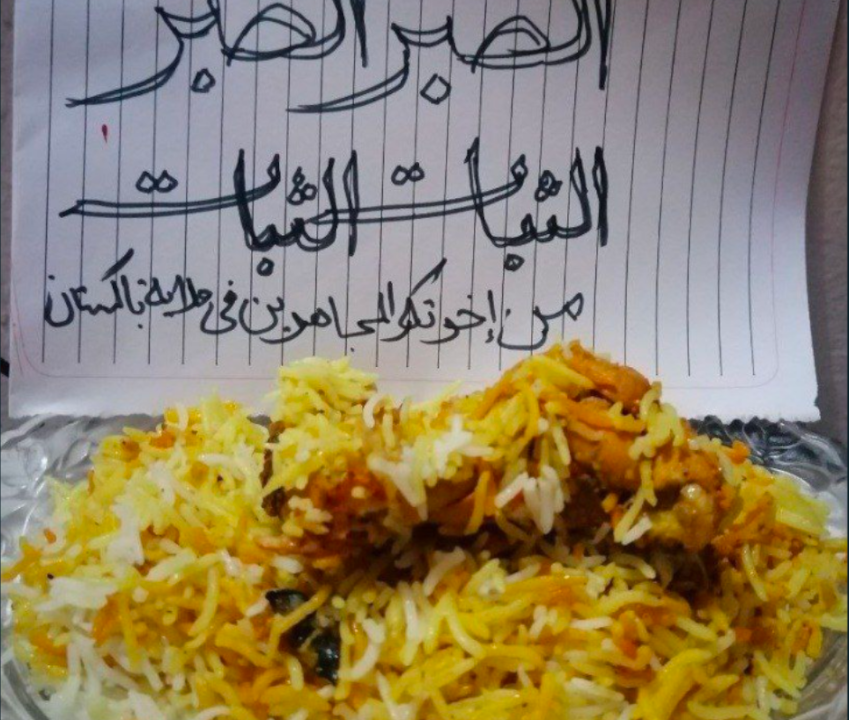 الصبر الصبر
الثبات الثبات
من إخوتكم المجاهدين في ولاية باكستان